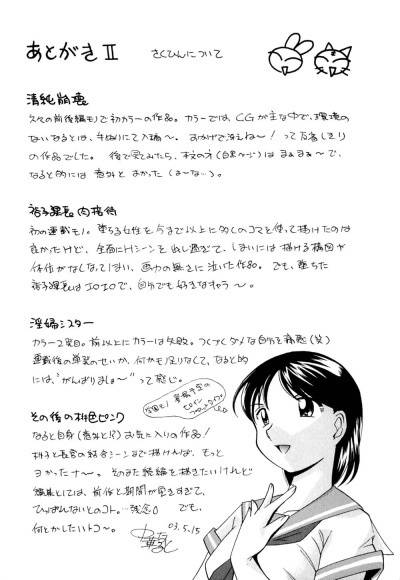 あとがきⅡ さくひんについて
清純崩壊
久々の前後編モノで初カラーの作品。カラーでは、CGが主な中で、環境の
ないなるとは、手ぬりにて入稿〜。おかげで冴えね〜!って言うしきり
の作品でした。後で見てみたら、本文の方(白黒ページ)はまぁまぁ〜で、
なると的には意外とよかった(よーな…)。
初の連載モノ。堕ちる女性を今まで以上に多くのコマを使って描けたのは
良かったけど、全面にHシーンを出し過ぎて、しまいには描ける構図や
体位がなくなってしまい、画力の無さに泣いた作品。でも、堕ちた
裕子課長はイロイロで、自分でも好きなキャラ〜。
淫婦シスター
カラー2東目。前以上にカラーは失敗。つくづくダメな自分を痛感(笑)
連載後の単発のせいか、何かモノ足りなくて、なると的
には、"がんばりましょ〜"って感じ。
その後の桃色ピンク
なると自身(意外と!?)お気に入りの作品!
桃子と長官の結合シーンまで描ければ、もっと
ヨかったナ〜。そのまた続編を描きたいけれど
編集としては、前作と期間が空きすぎて、
ひっぱれないとのコト。…残念 でも、
何とかしたいトコ〜。
03.5.15